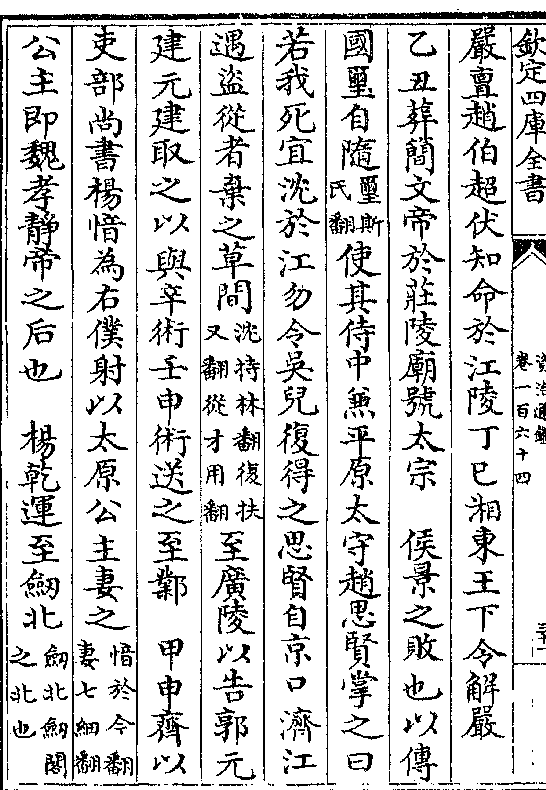 欽定四庫全書
資治通鑑
卷一百六十四
嚴亶趙伯超伏知命於江陵丁巳湘東王下令解嚴
乙丑葬簡文帝於莊陵廟號太宗　侯景之敗也以傳
國璽自隨璽斯氏翻使其侍中兼平原太守趙思賢掌之曰
若我死宜沈於江勿令吳兒復得之思賢自京口濟江
遇盜從者棄之草間沈持林翻復扶又翻從才用翻至廣陵以告郭元
建元建取之以與辛術壬申術送之至鄴　甲申齊以
吏部尚書楊愔為右僕射以太原公主妻之愔於今翻妻七細翻
公主即魏孝靜帝之后也　楊乾運至劒北劒北劒閣之北也